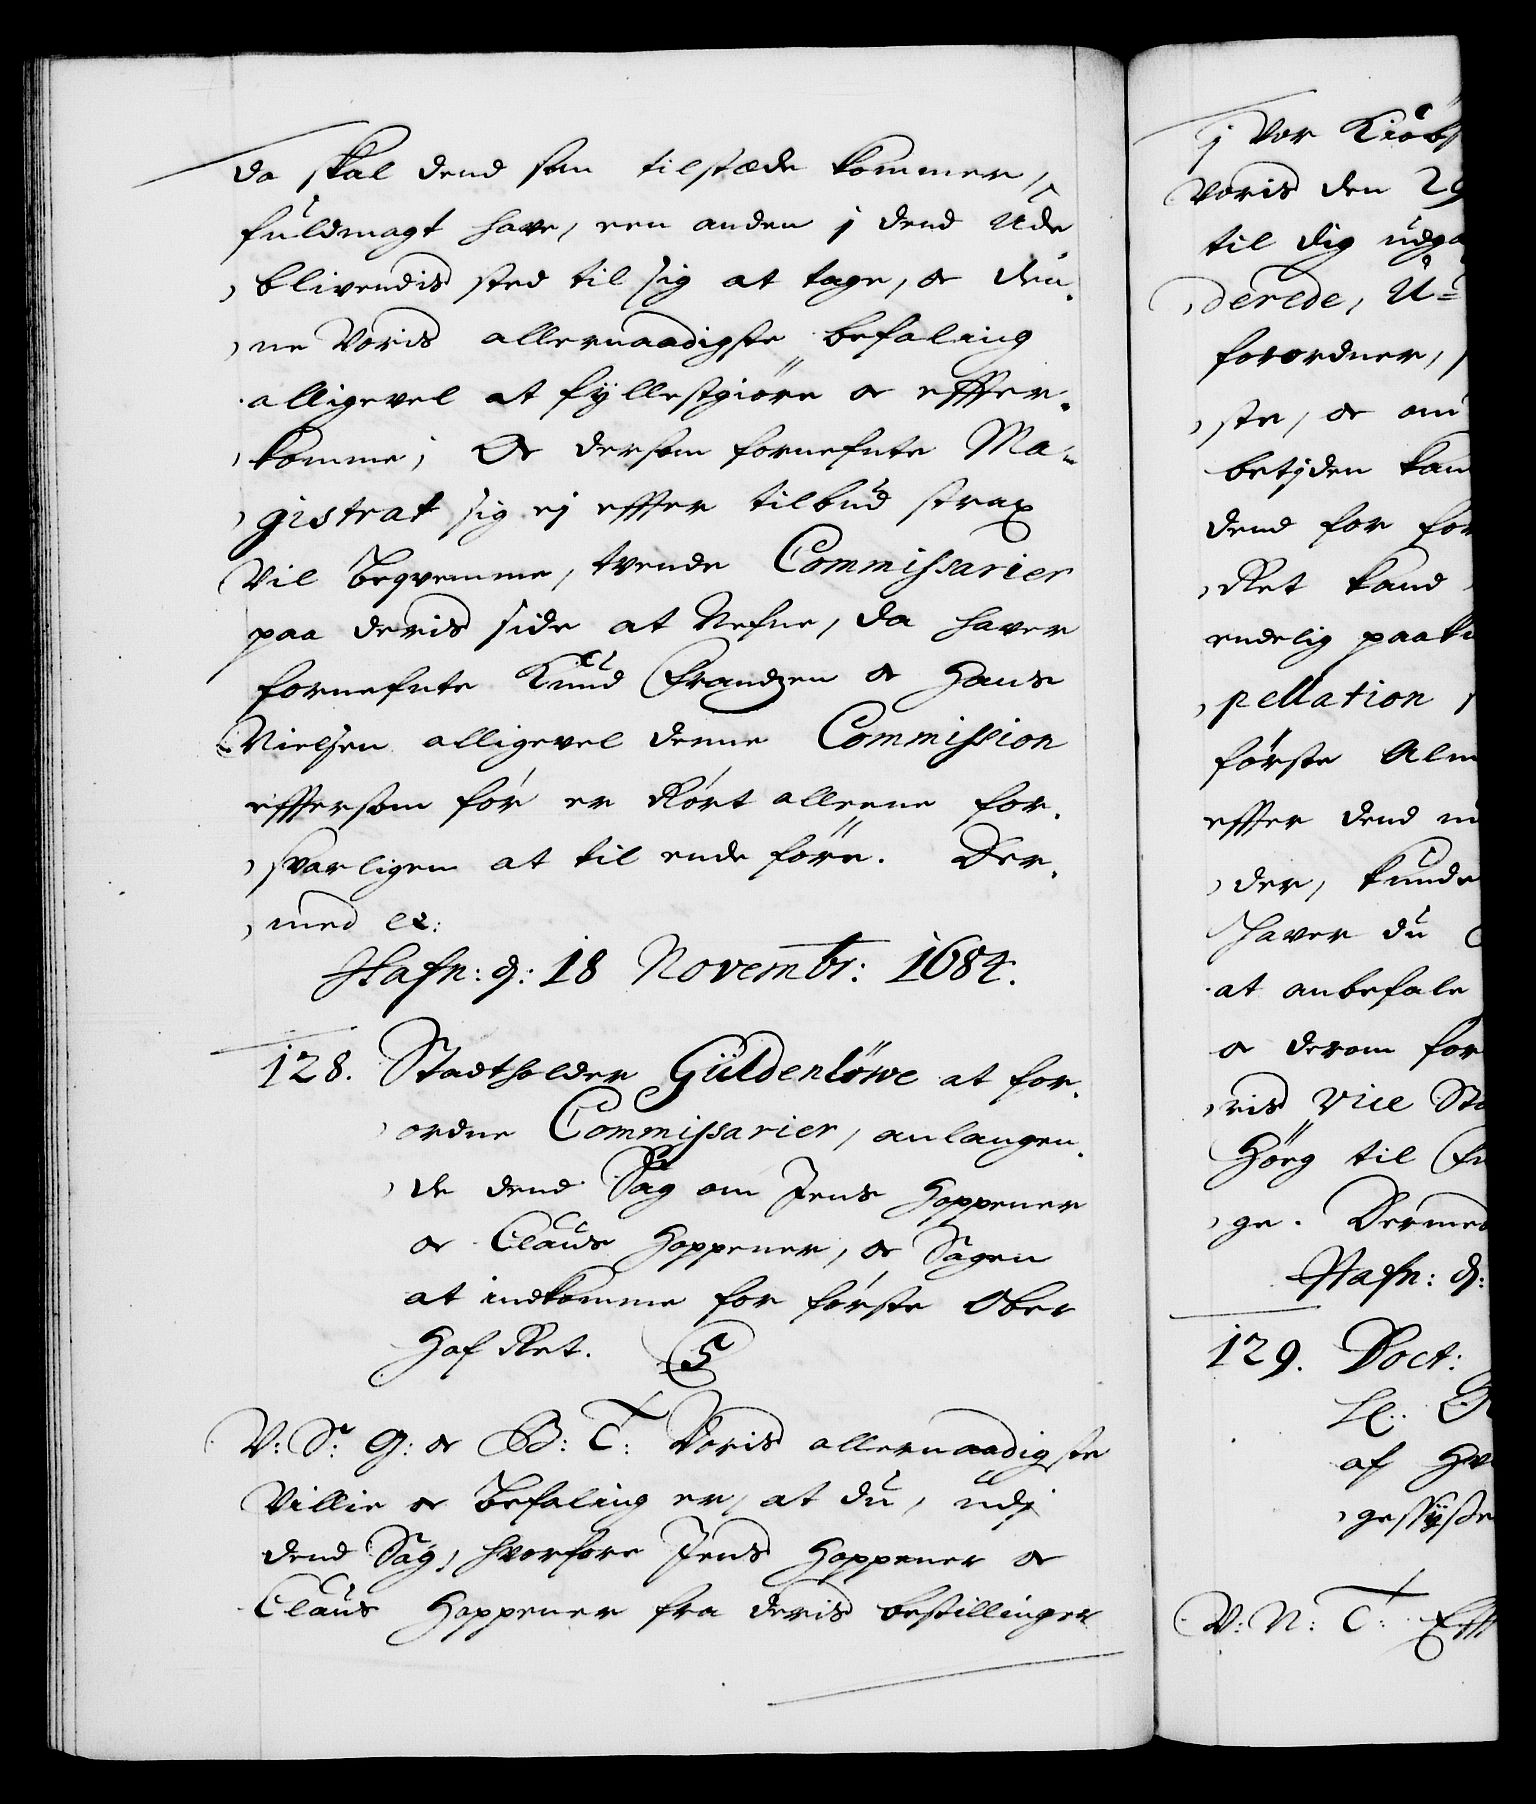 da skal dend som tilstæde kommer,
fuldmagt have, een anden j dend Ude
blivendis sted til sig at tage, oc den,,
ne Voris allernaadigste befaling
alligevel at fyllestgiöre oc effter,,
komme; Oc dersom fornefnte Ma-
gistrat sig ej effter tilbud strax
Vil beqvemme, tvende Commissarier
paa deris side at Nefne, da haver
fornefnte Knud Frandzen oc Hans
Nielsen alligevel denne Commission
efftersom för er Rört alleene for,,
svarligen at til ende före. Der,,
med etc:
Hafn: d: 18 Novembr: 1684.
128. Stadtholder Güldenlöwe at for,,
ordne Commissarier, anlangen,,
de dend Sag om Jens Hoppener
oc Claus Hoppener, oc Sagen
at indkomme for förste Ober
Hof Ret. 5
V: S: G: oc B: T: Voris allernaadigste
Villie oc befaling er, at du, udj
dend Sag, hvorfore Jens Hoppener oc
Claus Hoppener fra deris bestillinger
j Vor Kiöb
Voris den 29
til dig udga
derede, U=
forordner,
ste, oc om
betjden kan
dend for for
Ret kand
endelig paaki
pellation
förste Alm
effter dend nu
der, kunde
haver du
at anbefale
oc derom for
ris Vice Sta
Hörg til Fr
ge. Dermed
Hafn: d:
129. Doct:
af Hv
V: N: T: Efft